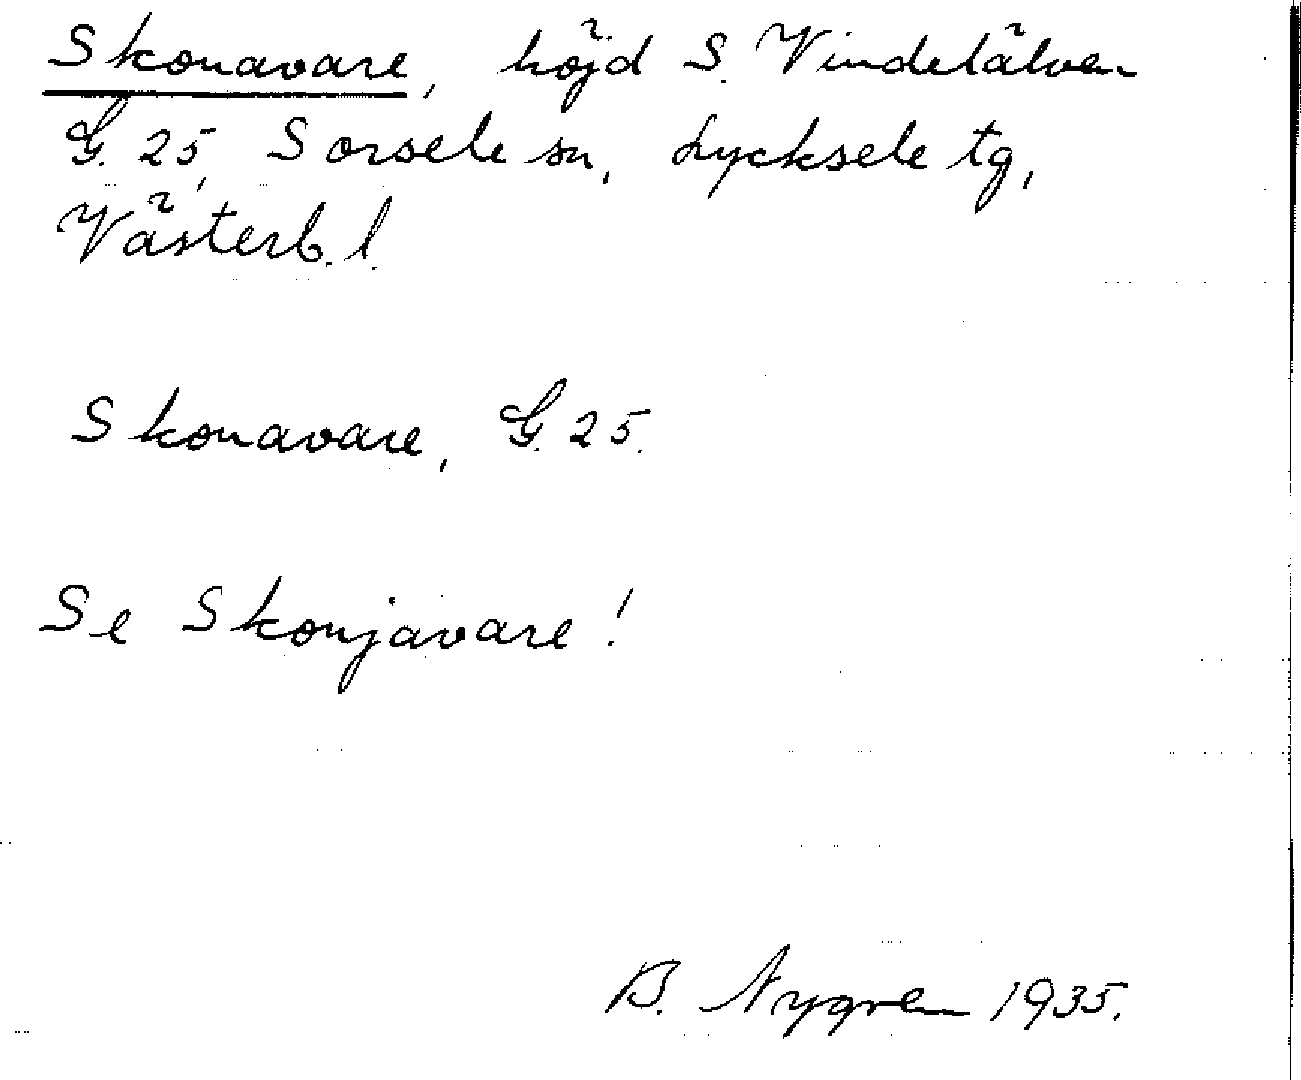 Skonavare, höjd S. Vindelälven
G. 25, Sorsele sn, Lycksele tg,
Västerb. l.
Skonavare, G. 25.
Se Skonjavare!
B. Nygren 1935.